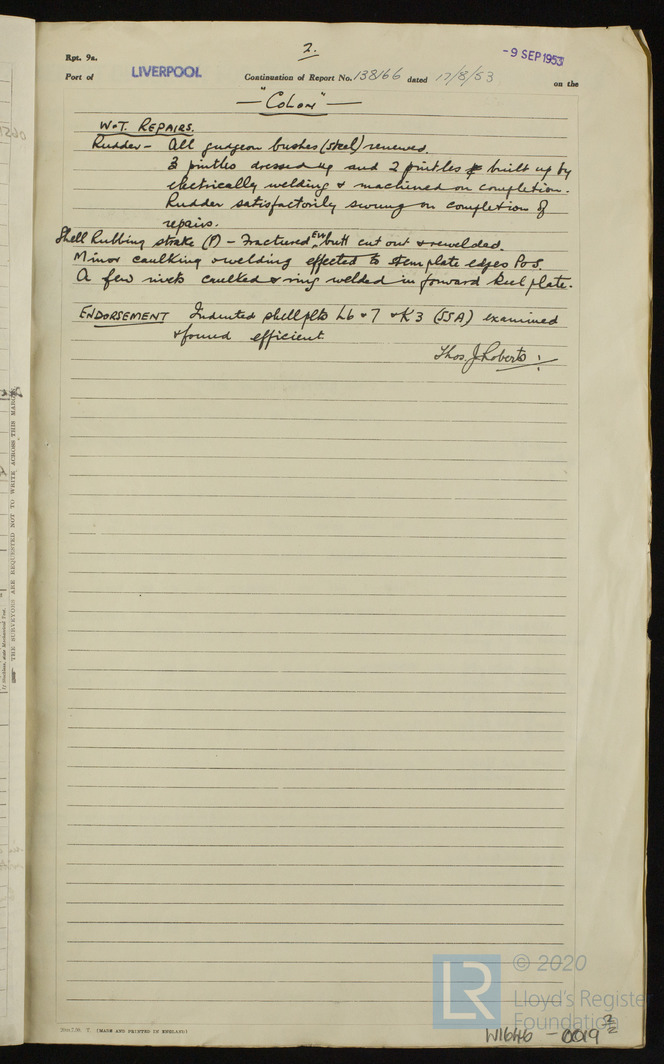 2.
- 9 SEP 1953
Rpt. 9a.
Port of LIVERPOOL Continuation of Report No. 138166 dated 17/8/53 on the
— "COLON" —
W & T. REPAIRS.
Rudder - All gudgeon bushes (steel) renewed.
3 pintles dressed up and 2 pintles built up by
electrically welding & machined on completion.
Rudder satisfactorily swung on completion of
repairs.
Shell Rubbing strake (P) - Fractured EW butt cut out & rewelded.
Minor caulking & welding effected to stem plate edges P & S.
A few rivets caulked & ring welded in forward keel plate.
ENDORSEMENT Indented shell plts L6 & 7 & K3 (SSA) examined
& found efficient.
Thos. J. Roberts
THE SURVEYORS ARE REQUESTED NOT TO WRITE ACROSS THIS MARGIN
(MADE AND PRINTED IN ENGLAND)
LR
© 2020
Lloyd's Register
Foundation
W1646 - 0019 2/2